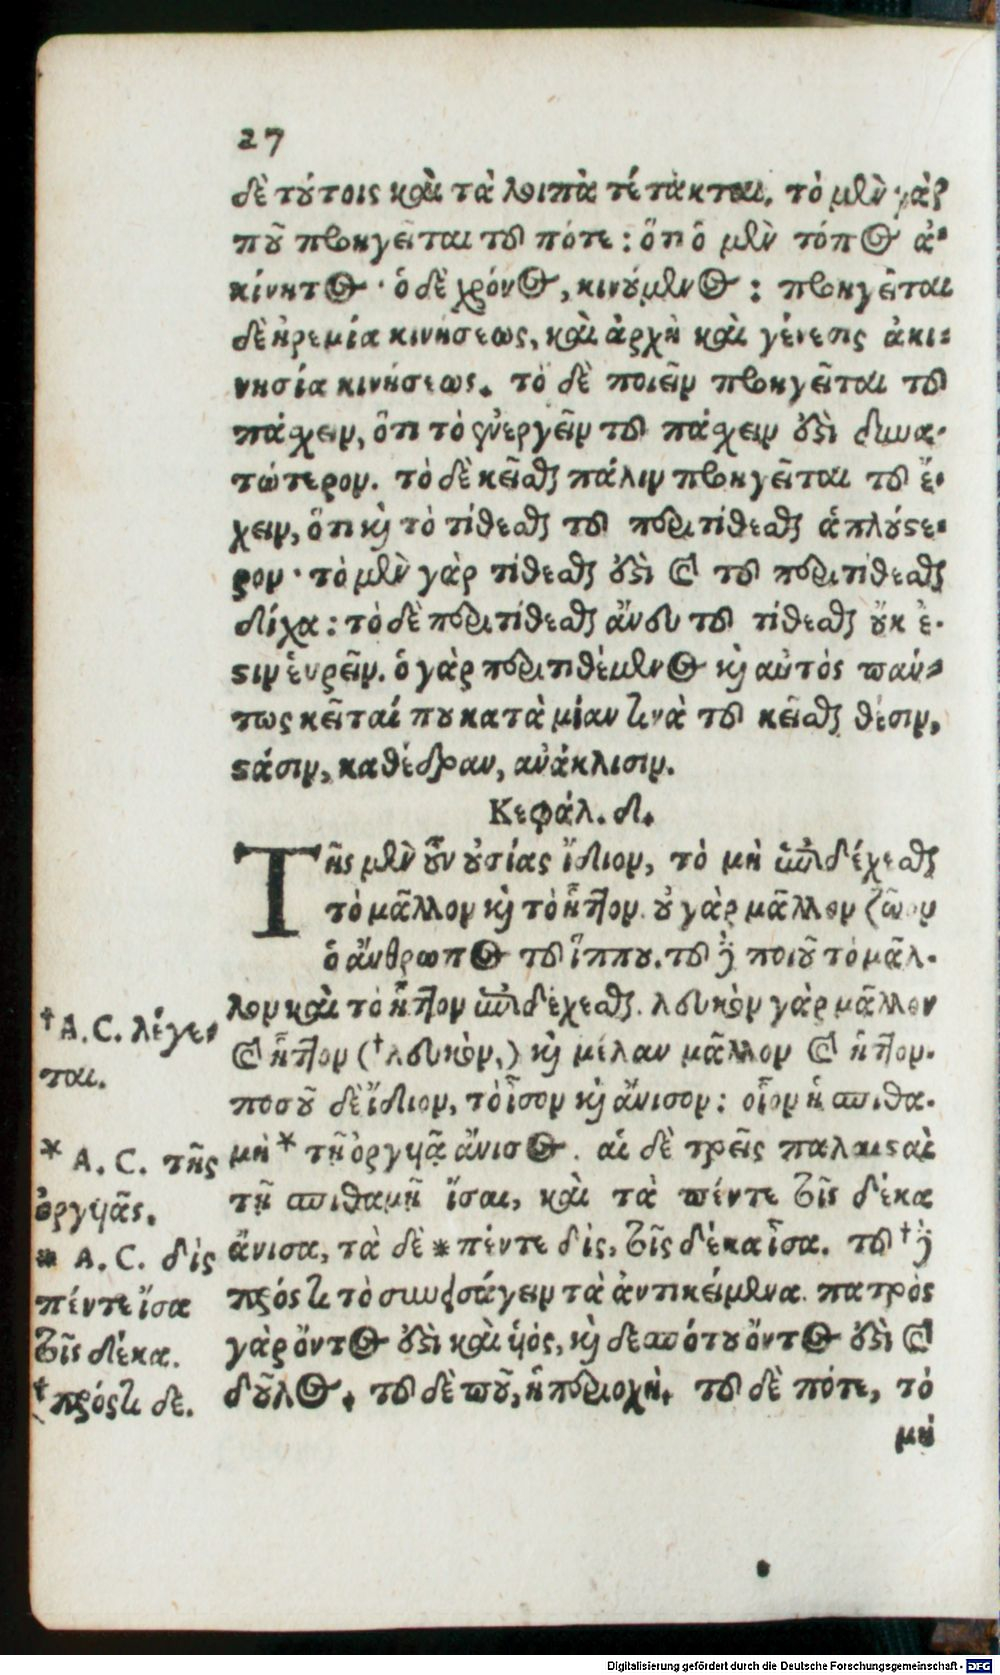 27
δὲ τούτοις καὶ τὰ λοιπὰ τέτακται. τὸ μὲν γὰρ
ποῦ προηγεῖται τοῦ πότε : ὅτι ὁ μὲν τόπος ἀ-
κίνητος · ὁ δὲ χρόνος, κινούμενος : προηγεῖται
δὲ ἠρεμία κινήσεως, καὶ ἀρχὴ καὶ γένεσις ἀκι-
νησία κινήσεως. τὸ δὲ ποιεῖν προηγεῖται τοῦ
πάσχειν, ὅτι τὸ ἐνεργεῖν τοῦ πάσχειν ἐστὶ δυνα-
τώτερον. τὸ δὲ κεῖσθαι πάλιν προηγεῖται τοῦ ἔ-
χειν, ὅτι καὶ τὸ τίθεσθαι τοῦ περιτίθεσθαι ἁπλούστε-
ρον · τὸ μὲν γὰρ τίθεσθαι ἐστὶ καὶ τοῦ περιτίθεσθαι
δίχα : τὸ δὲ περιτίθεσθαι ἄνευ τοῦ τίθεσθαι οὔκ ἐ-
στιν εὑρεῖν. ὁ γὰρ περιτιθέμενος καὶ αὐτὸς πάν-
τως κεῖταί που κατὰ μίαν τινὰ τοῦ κεῖσθαι θέσιν,
στάσιν, καθέδραν, ἀνάκλισιν.
Κεφάλ. δ.
Τῆς μὲν οὖν οὐσίας ἴδιον, τὸ μὴ ἐπιδέχεσθαι
τὸ μᾶλλον καὶ τὸ ἧττον. οὐ γὰρ μᾶλλον ζῶον
ὁ ἄνθρωπος τοῦ ἵππου. τοῦ δὲ ποιοῦ τὸ μᾶλ-
λον καὶ τὸ ἧττον ἐπιδέχεσθαι. λευκὸν γὰρ μᾶλλον
καὶ ἧττον († λευκὸν,) καὶ μέλαν μᾶλλον καὶ ἧττον.
ποσοῦ δὲ ἴδιον, τὸ ἶσον καὶ ἄνισον : οἷον ἡ σπιθα-
μὴ * τῇ ὀργυιᾷ ἄνισος. αἱ δὲ τρεῖς παλαισταὶ
τῇ σπιθαμῇ ἴσαι, καὶ τὰ πέντε τοῖς δέκα
ἄνισα, τὰ δὲ * πέντε δὶς, τοῖς δέκα ἶσα. τοῦ † δὲ
πρός τι τὸ συνεισάγειν τὰ ἀντικείμενα. πατρὸς
γὰρ ὄντος ἐστὶ καὶ υἱός, καὶ δεσπότου ὄντος ἐστὶ καὶ
δοῦλος. τοῦ δὲ ποῦ, ἡ περιοχή. τοῦ δὲ πότε, τὸ
μὴ
† A. C. λέγε-
ται.
* A. C. τῆς
ὀργυιᾶς.
* A. C. δὶς
πέντε ἴσα
τοῖς δέκα.
† πρός τι δε.
Digitalisierung gefördert durch die Deutsche Forschungsgemeinschaft - DFG